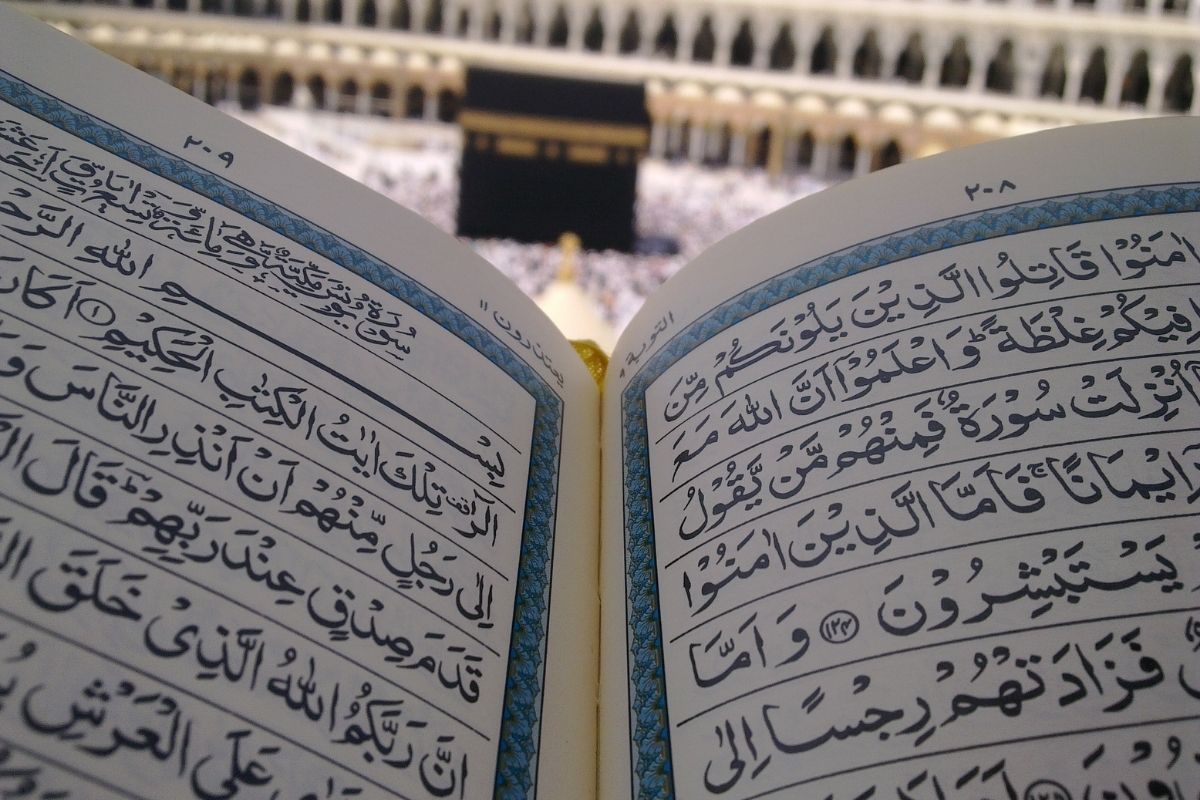 ٢٠٨
التوبة ٩
اٰمَنُوْا قَاتِلُوا الَّذِيْنَ يَلُوْنَكُمْ مِّنَ
فِيْكُمْ غِلْظَةً ؕ وَاعْلَمُوْۤا اَنَّ اللّٰهَ مَعَ
اُنْزِلَتْ سُوْرَةٌ فَمِنْهُمْ مَّنْ يَّقُوْلُ
اِيْمَانًا ۚ فَاَمَّا الَّذِيْنَ اٰمَنُوْا
يَسْتَبْشِرُوْنَ ﴿١٢٤﴾ وَاَمَّا
فَزَادَتْهُمْ رِجْسًا اِلٰى
٢٠٩
يعتذرون ١١
سُوْرَةُ يُوْنُسَ مَكِّيَّةٌ وَّهِيَ مِائَةٌ وَّتِسْعُ اٰيَاتٍ
بِسْمِ اللّٰهِ الرَّحْ
الٓرٰ ۫ تِلْكَ اٰيٰتُ الْكِتٰبِ الْحَكِيْمِ ﴿١﴾ اَكَانَ
اِلٰى رَجُلٍ مِّنْهُمْ اَنْ اَنْذِرِ النَّاسَ وَ
قَدَمَ صِدْقٍ عِنْدَ رَبِّهِمْ ؕ قَالَ
اِنَّ رَبَّكُمُ اللّٰهُ الَّذِيْ خَلَقَ
عَلَى الْعَرْشِ